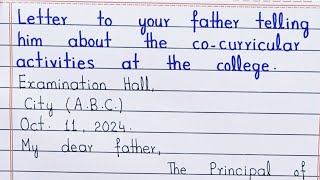 Letter to your father telling
him about the co-curricular
activities at the college.
Examination Hall,
City (A.B.C.)
Oct. 11, 2024.
My dear father,
The Principal of